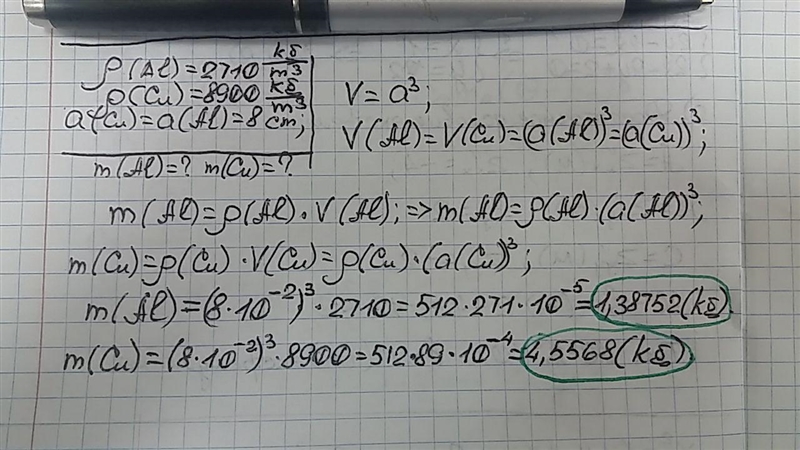 ρ(Al)=2710 кг/m³
ρ(Cu)=8900 кг/m³
a(Cu)=a(Al)=8 cm;
m(Al)=? m(Cu)=?
V=a³;
V(Al)=V(Cu)=(a(Al))³=(a(Cu))³;
m(Al)=ρ(Al)·V(Al);=>m(Al)=ρ(Al)·(a(Al))³;
m(Cu)=ρ(Cu)·V(Cu)=ρ(Cu)·(a(Cu))³;
m(Al)=(8·10⁻²)³·2710=512·271·10⁻⁵=1,38752(кг)
m(Cu)=(8·10⁻²)³·8900=512·89·10⁻⁴=4,5568(кг)